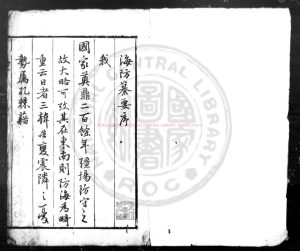 海防纂要序
我
國家奠鼎二百餘年疆場防守之
故大略可攷其在東南則防海為時
重云日者三韓告變震隣之憂
勢属孔棘
CENTRAL LIBRARY